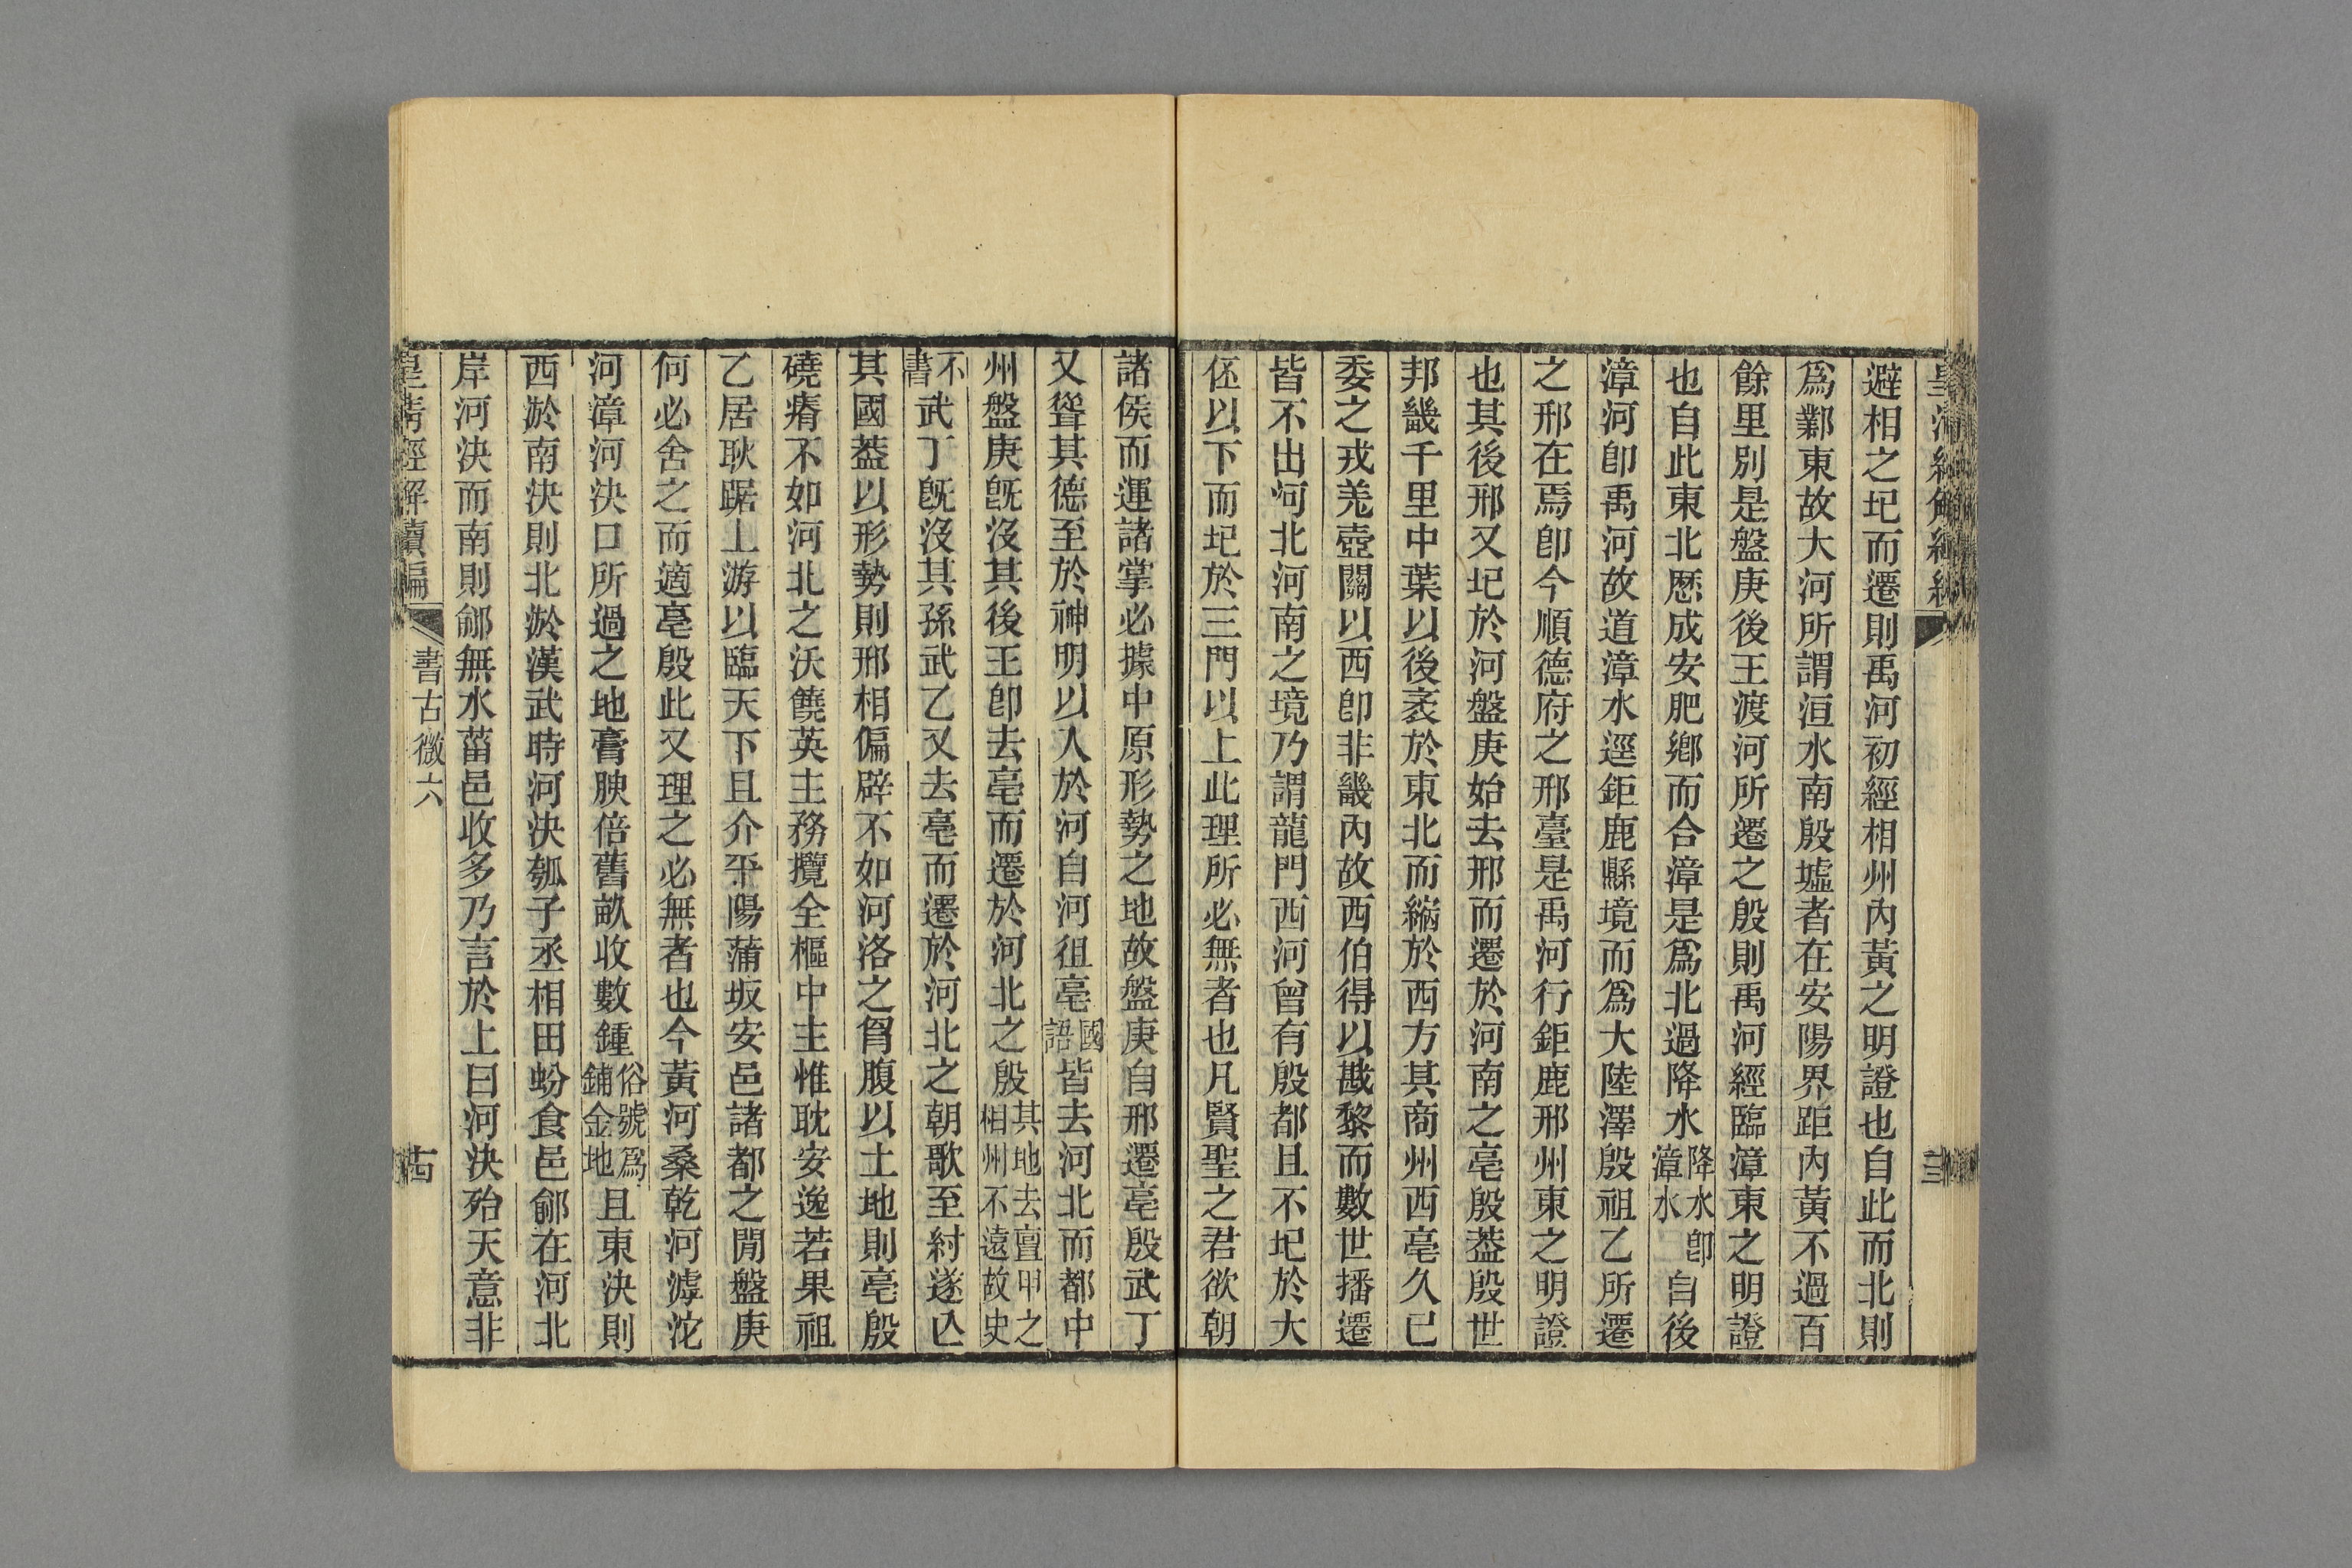 避相之圯而遷則禹河初經相州內黃之明證也自此而北則
爲鄴東故大河所謂洹水南殷墟者在安陽界距內黃不過百
餘里別是盤庚後王渡河所遷之殷則禹河經臨漳東之明證
也自此東北歷成安肥鄉而合漳是爲北過降水降水卽漳水自後
漳河卽禹河故道漳水逕鉅鹿縣境而爲大陸澤殷祖乙所遷
之邢在焉卽今順德府之邢臺是禹河行鉅鹿邢州東之明證
也其後邢又圯於河盤庚始去邢而遷於河南之亳殷葢殷世
邦畿千里中葉以後袤於東北而縮於西方其商州西亳久已
委之戎羗壺關以西卽非畿內故西伯得以戡黎而數世播遷
皆不出河北河南之境乃謂龍門西河曾有殷都且不圯於大
伾以下而圯於三門以上此理所必無者也凡賢聖之君欲朝
諸侯而運諸掌必據中原形勢之地故盤庚自邢遷亳殷武丁
又聳其德至於神明以入於河自河徂亳國語皆去河北而都中
州盤庚旣沒其後王卽去亳而遷於河北之殷其地去亶甲之相州不遠故史
不書武丁旣沒其孫武乙又去亳而遷於河北之朝歌至紂遂亾
其國葢以形勢則邢相偏辟不如河洛之胷腹以土地則亳殷
磽瘠不如河北之沃饒英主務攬全樞中主惟耽安逸若果祖
乙居耿踞上游以臨天下且介平陽蒲坂安邑諸都之閒盤庚
何必舍之而適亳殷此又理之必無者也今黃河桑乾河滹沱
河漳河決口所過之地膏腴倍舊畝收數鍾俗號爲鋪金地且東決則
西淤南決則北淤漢武時河決瓠子丞相田蚡食邑鄃在河北
岸河決而南則鄃無水菑邑收多乃言於上曰河決殆天意非
皇清經解續編
書古微六
十四